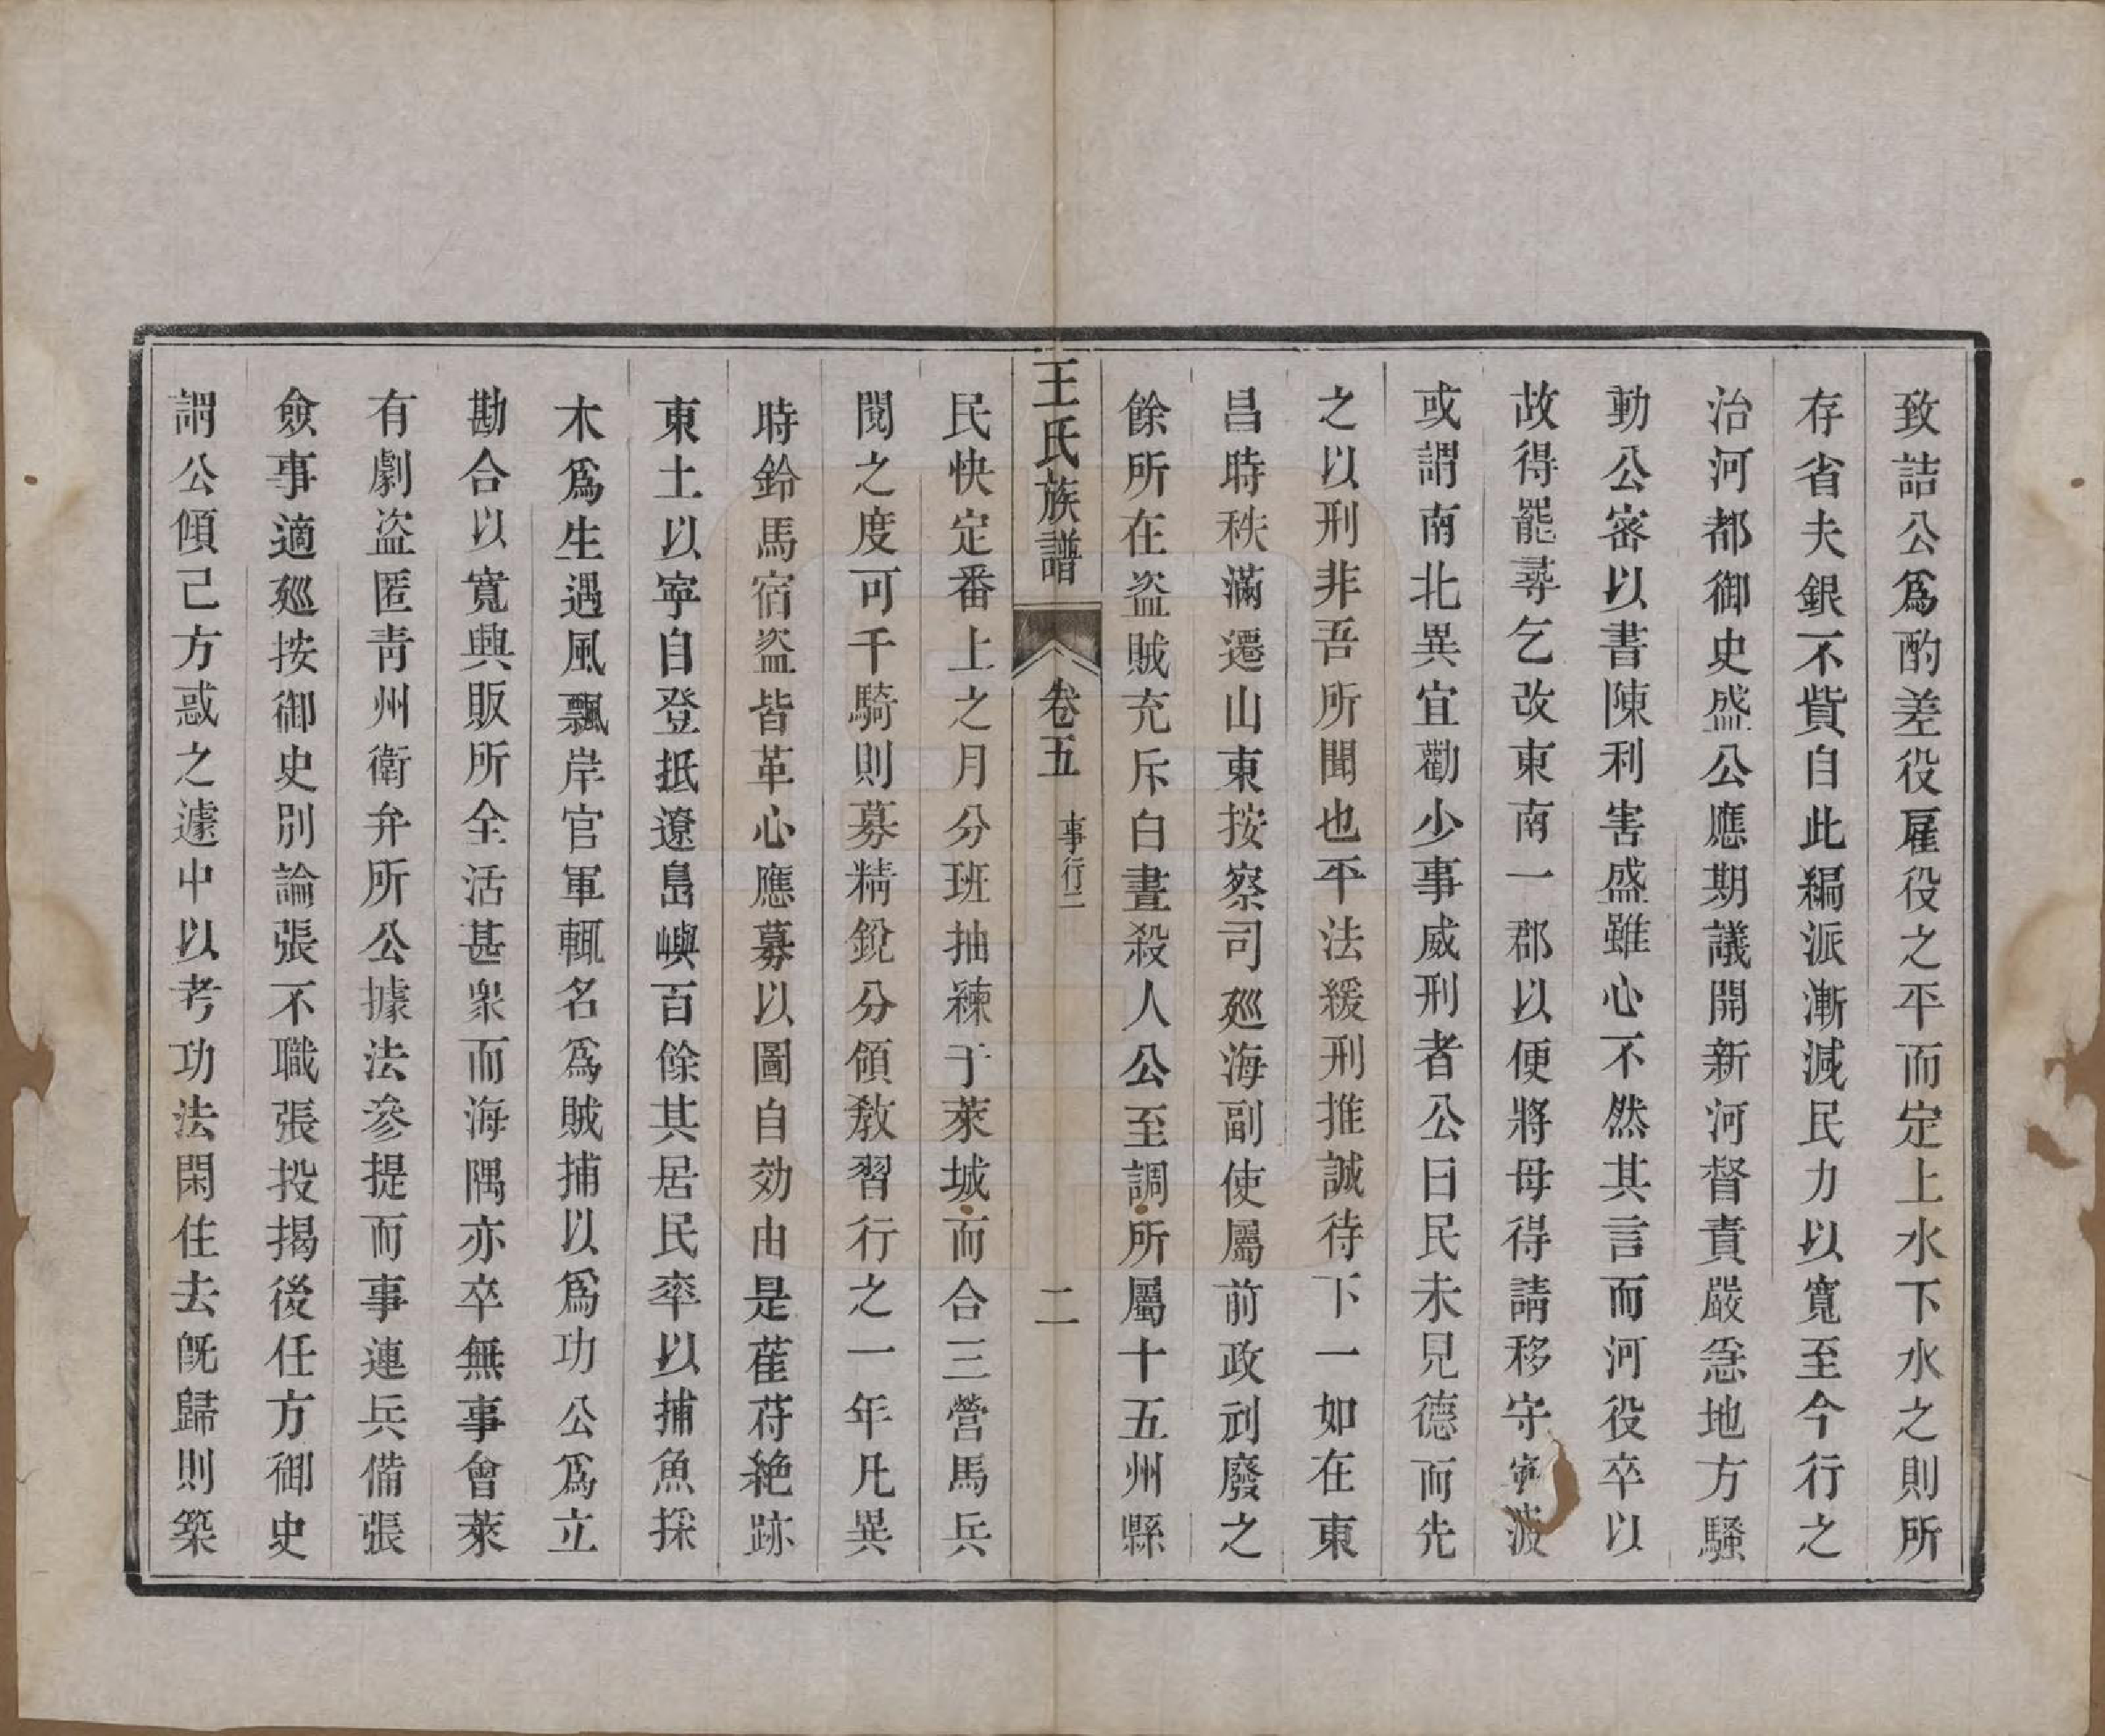 致詰公爲酌差役雇役之平而定上水下水之則所
存省夫銀不貲自此編派漸減民力以寬至今行之
治河都御史盛公應期議開新河督責嚴急地方騷
動公密以書陳利害盛雖心不然其言而河役卒以
故得罷尋乞改東南一郡以便將母得請移守寧波
或謂南北異宜勸少事威刑者公曰民未見德而先
之以刑非吾所聞也平法緩刑推誠待下一如在東
昌時秩滿遷山東按察司廵海副使屬前政刓廢之
餘所在盜賊充斥白晝殺人公至調所屬十五州縣
王氏族譜 卷五 事行二 二
民快定番上之月分班抽練于萊城而合三營馬兵
閱之度可千騎則募精銳分領敎習行之一年凡異
時鈴馬宿盜皆革心應募以圖自効由是萑苻絶跡
東土以寧自登抵遼島嶼百餘其居民率以捕魚採
木爲生遇風飄岸官軍輒名爲賊捕以爲功公爲立
勘合以寬興販所全活甚衆而海隅亦卒無事會萊
有劇盜匿靑州衛弁所公據法參提而事連兵備張
僉事適廵按御史別論張不職張投揭後任方御史
謂公傾己方惑之遽中以考功法閑住去旣歸則築